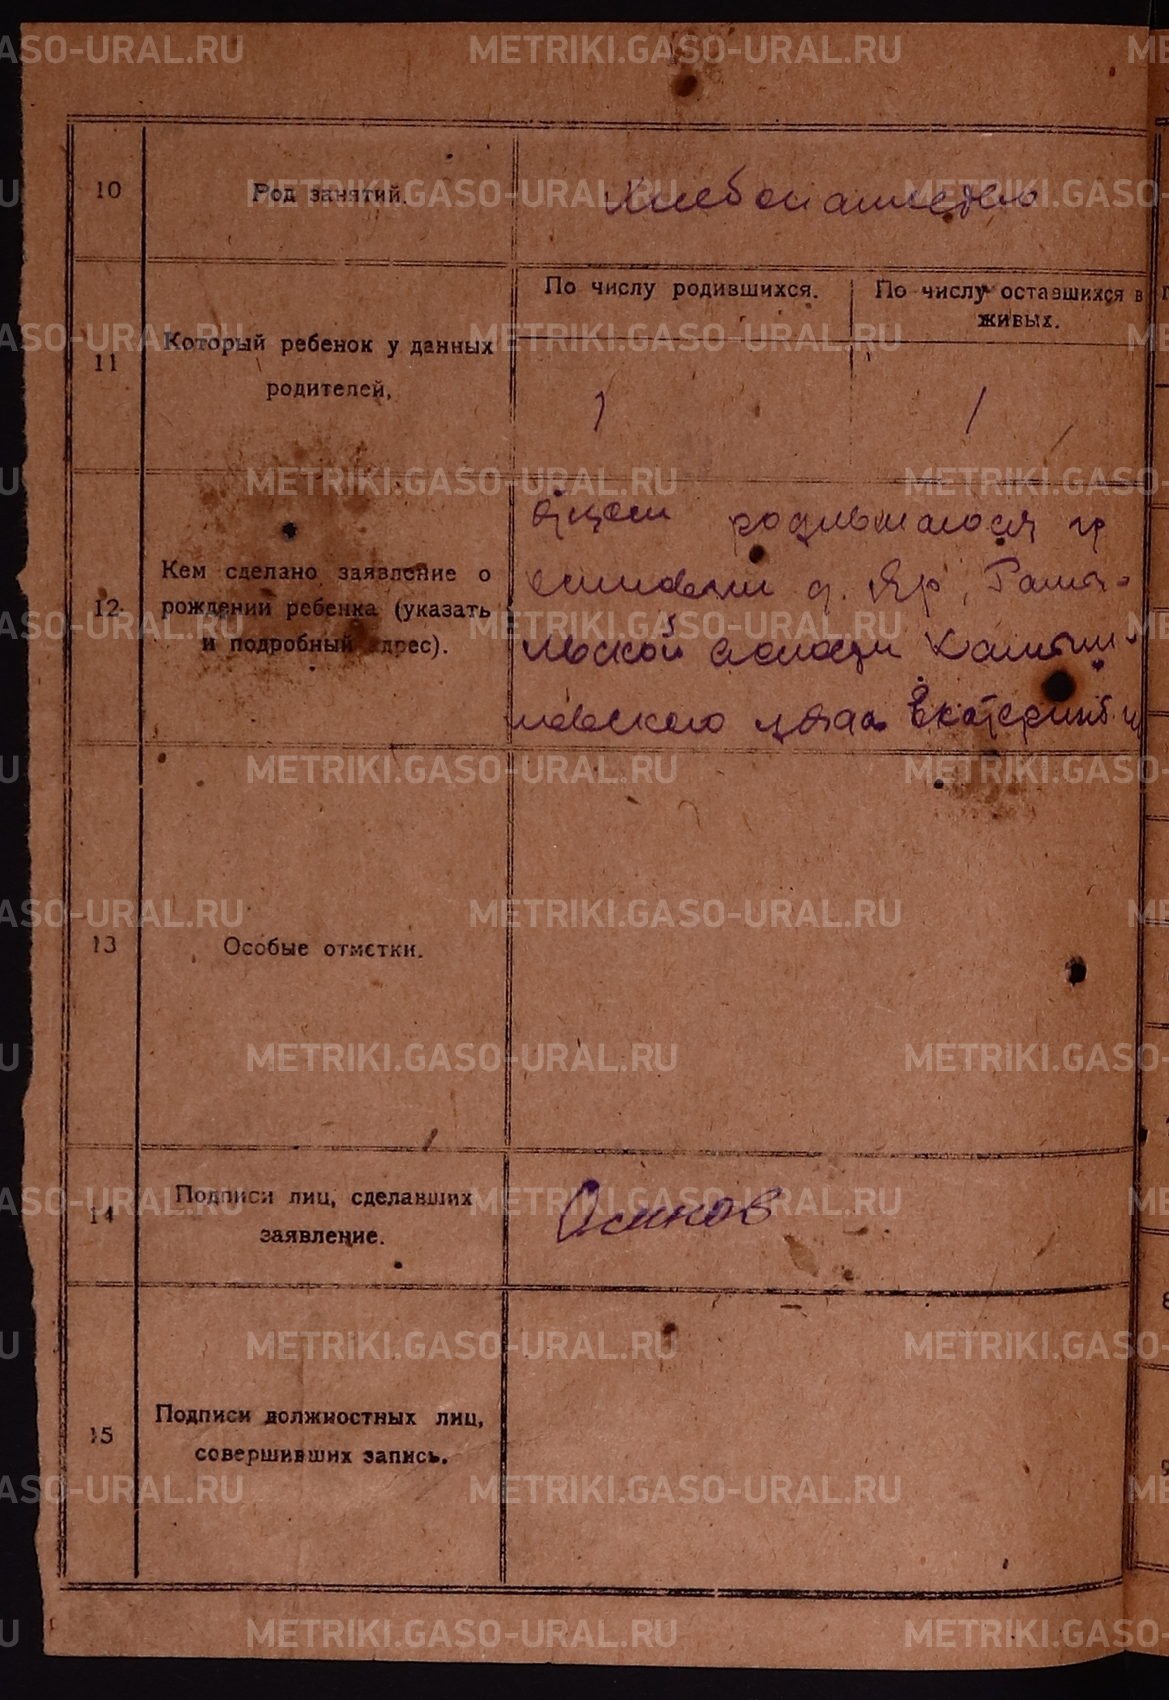 METRIKI.GASO-URAL.RU
10
Род занятий.
Хлебопашество
11
Который ребенок у данных
родителей,
По числу родившихся.
По число оставшихся в
живых.
1
1
12
Кем сделано заявление о
рождении ребенка (указать
и подробный адрес).
Отцом родившагося гр
Осиновым д. Яр,
льской волости Камыш-
ловского уезда Екатеринб. г
13
Особые отметки.
14
Подписи лиц, сделавших
заявление.
Осинов
15
Подписи должностных лиц,
совершивших запись.